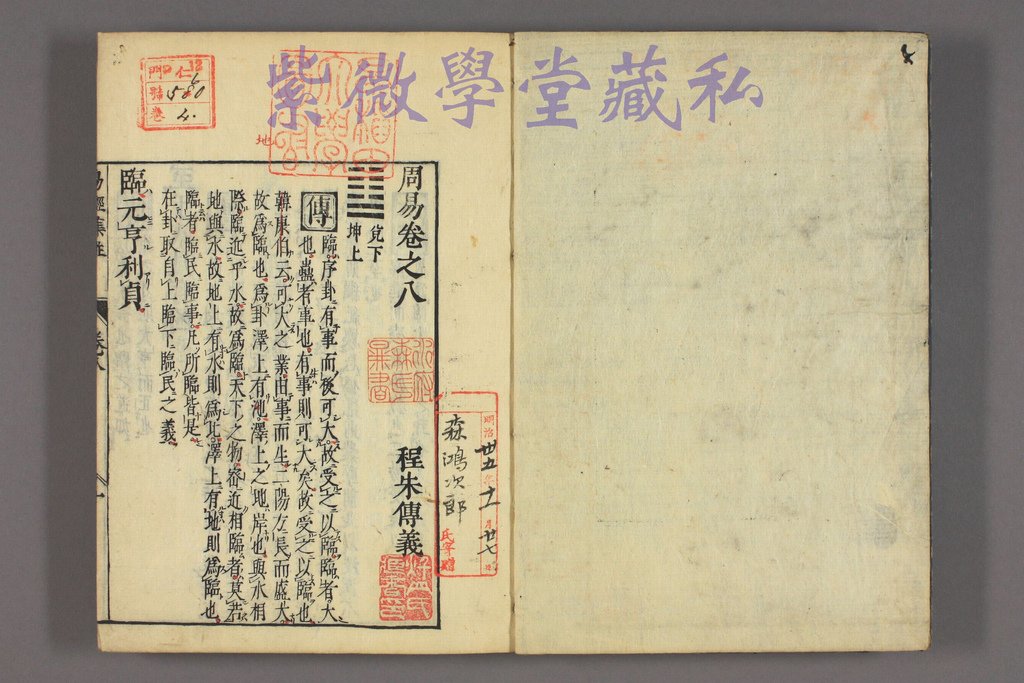 紫微學堂藏私
周易卷之八
程朱傳義
兌下
坤上
傳
臨序卦有事而後可大故受之以臨臨者大
也蠱者事也有事則可大矣故受之以臨也
韓康伯云可大之業由事而生二陽方長而盛大
故為臨也為卦澤上有地澤上之地岸也與水相
際臨近乎水故為臨天下之物密近相臨者莫若
地與水故地上有水則為比澤上有地則為臨也
臨者臨民臨事凡所臨皆是
在卦取自上臨下臨民之義
臨元亨利貞
易經集註
卷八
一
門
仁
12
6
號
580
卷
4
地
明治卅五年十一月廿七日
森鴻次郎
氏寄贈